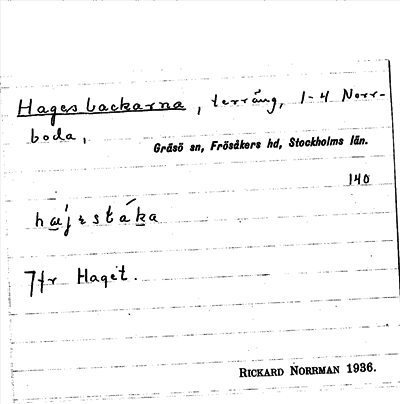 Hages backarna, terräng, 1-4 Norr-
boda,
Gräsö sn, Frösåkers hd, Stockholms län.
140
Jfr Haget.
RICKARD NORRMAN 1936.